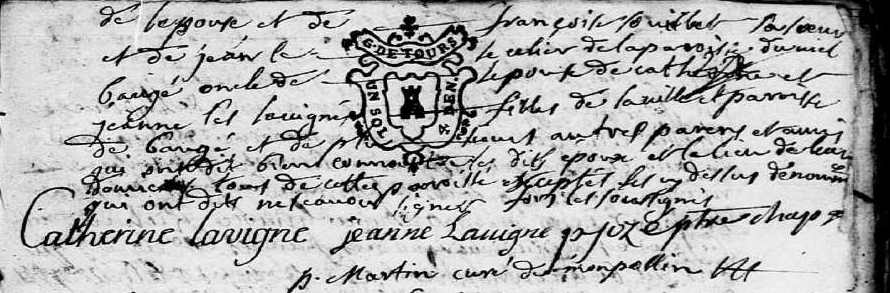 de lepouse et de françoise souillet sa soeur
et de jean le celier de la paroisse du viel
baugé oncle de lepouse de catherine et
jeanne les lavigne filles de la ville et paroisse
de baugé et de plusieurs autres parens et amis
qui ont dit bien connoitre les dits epoux et le lieu de leur
domicile tous de cette paroisse exceptes les cy dessus dénommé
qui ont dits ne scavoir signer fors les soussignés
Catherine lavigne jeanne Lavigne p joz ptre chap
p. Martin curé de monpollin
G. DE TOURS
UN SOL
DEN.